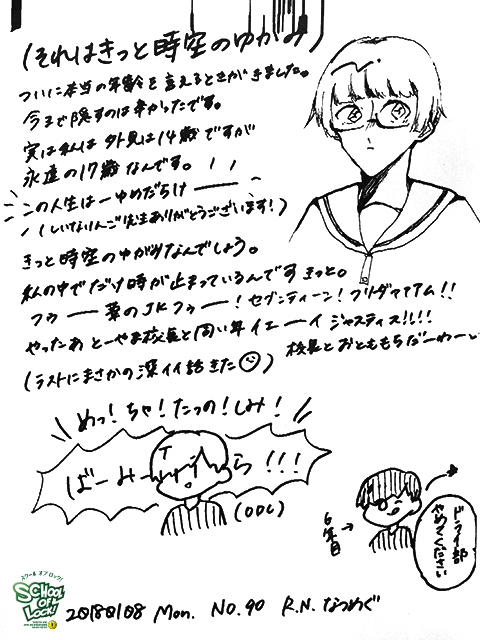 (それはきっと時空のゆがみ)
ついに本当の年齢を言えるときがきました。
今まで隠すのは辛かったです。
実は私は外見は14歳ですが
永遠の17歳なんです。
この人生はーゆめだらけー
(しいなりんご先生ありがとうございます!)
きっと時空のゆがみなんでしょう。
私の中でだけ時が止まっているんですきっと。
フゥー葉のJKフゥー!セブンティーン!フリダァァアム!!
やったあとーやま校長と同い年イエーイジャスティス!!!!
校長とおともだちだーわーい
(ラストにまさかの深イイ話きた)
めっ!ちゃ!たっの!しみ!
ばーみーら!!!
(ODC)
6年目→
ドライ部
やめてください
スクール オブ ロック!
SCHOOL
OF
LOCK!
20180108 Mon. NO.90 R.N. なつめぐ